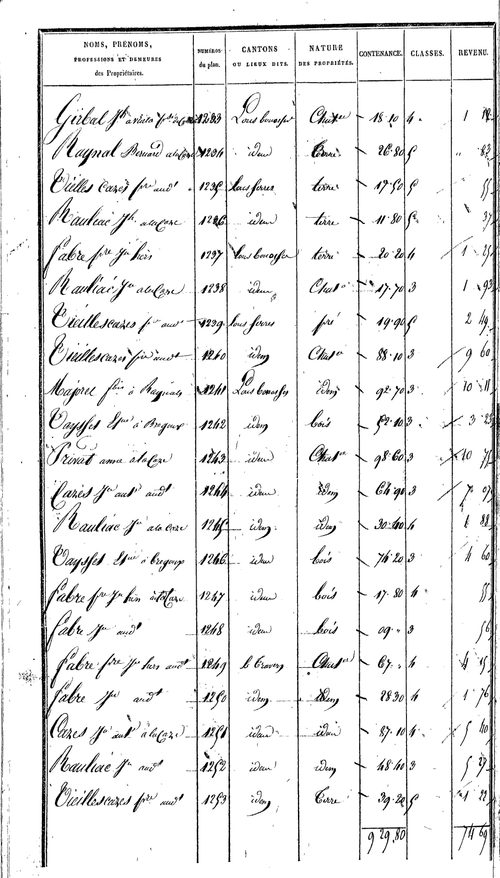 NOMS, PRÉNOMS, PROFESSIONS ET DEMEURES des Propriétaires. NUMÉROS du plan. CANTONS OU LIEUX DITS. NATURE DES PROPRIÉTÉS. CONTENANCE. CLASSES. REVENU.
Girbal Jh 1233 Chatre 18.10 4 1
Raynal Bernard a la Caze 1234 idem terre 26.80 5 " 83
Vielles Cazes frse audt 1235 lous ferres terre 17.50 5 55
Rauliac Jh a la Caze 1236 idem terre 11.80 5 37
Fabre frse Jn 1237 terre 20.20 4 1 25
Rauliac Jn a la Caze 1238 idem Chatre 17.70 3 1 93
Vieillescazes fr audt 1239 lous ferres pré 19.90 5 2 49
Vieillescazes frse audt 1240 idem Chatre 88.10 3 9 60
Majorel à 1241 idem 92.70 3 10 11
Vaysset Etne à 1242 idem bois 52.10 3 3 23
Privat a la Caze 1243 idem Chatre 98.60 3 10 75
Cazes Jn antne audt 1244 idem idem 64.90 3 7 07
Rauliac Jn a la Caze 1245 idem idem 30.40 4 1 88
Vaysset Etne à 1246 idem bois 74.20 3 4 60
Fabre frse Jn a la Caze 1247 idem bois 17.80 4 55
Fabre Jn audt 1248 idem bois 09." 3 56
Fabre frse Jn audt 1249 le Travers Chatre 67." 4 4 15
Fabre Jn audt 1250 idem idem 28.30 4 1 76
Cazes Jn antne à la Caze 1251 idem idem 87.10 4 5 40
Rauliac Jn audt 1252 idem idem 48.40 3 5 27
Vieillescazes frse audt 1253 idem Terre 39.20 5 1 22
9 29.80 74 69